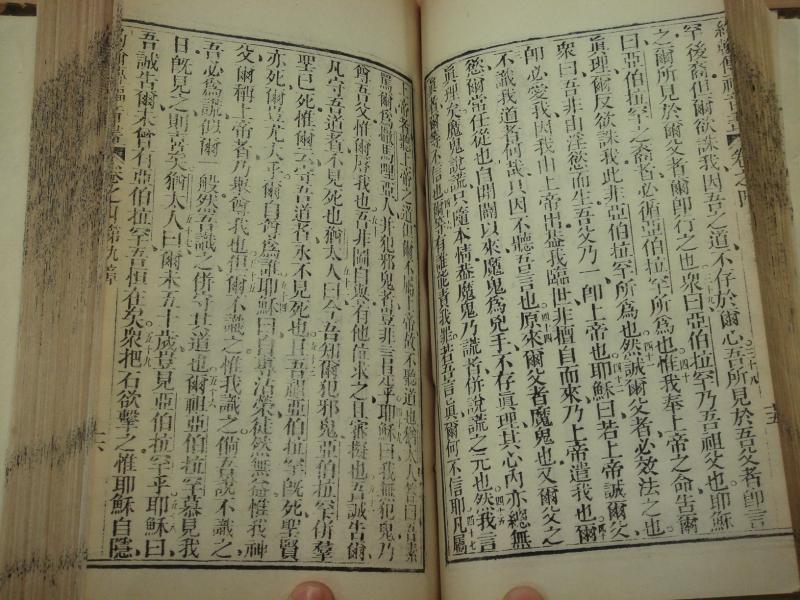 約翰傳福音書 卷之四 五
罕後裔但爾欲誅我因吾之道不存於爾心吾所見於吾父者即言
之爾所見於爾父者爾即行之也衆曰亞伯拉罕乃吾祖父也耶穌
曰亞伯拉罕之裔者必循亞伯拉罕所爲也惟我奉上帝之命告爾
眞理爾反欲誅我此非亞伯拉罕所爲也然誠爾父者必效法之也
衆曰吾非由淫慾而生吾父乃一即上帝也耶穌曰若上帝誠爾父
即必愛我因我由上帝出葢我臨世非擅自而來乃上帝遣我也爾
不識我道者何哉只因不聽吾言也原來爾父者魔鬼也又爾父之
慾爾常任從也自開闢以來魔鬼爲兇手不存眞理其心內亦總無
眞理矣魔鬼說謊只隨本情葢魔鬼乃謊者併說謊之元也然我言
爾等不信也爾等有誰能責我罪若吾言眞爾何不信耶凡屬
上帝者聽上帝之道但爾不屬上帝故不聽道也猶太人答曰吾素
罵爾也馬利亞人并犯邪鬼者豈非言是乎耶穌曰我無犯鬼乃
尊吾父惟爾辱我也吾非圖自譽有他位求之且審擬也吾誠告爾
凡守吾道者不見死也猶太人曰今吾知爾犯邪鬼亞伯拉罕併羣
聖已死惟爾云守吾道者永不見死也且吾祖亞伯拉罕既死聖賢
亦死爾豈尤大乎爾自尊爲誰耶穌曰自與沾榮徒然無益惟我神
父爾稱上帝者乃與尊我也但爾不識之惟我識之倘吾說不識之
吾必爲謊似爾一般然吾識之併守其道也爾祖亞伯拉罕慕見我
日既見之則喜矣猶太人曰爾未五十歲豈見亞伯拉罕乎耶穌曰
吾誠告爾未曾有亞伯拉罕吾恒在矣衆把石欲擊之惟耶穌自隱
約翰傳福音書 卷之四 第九章 六